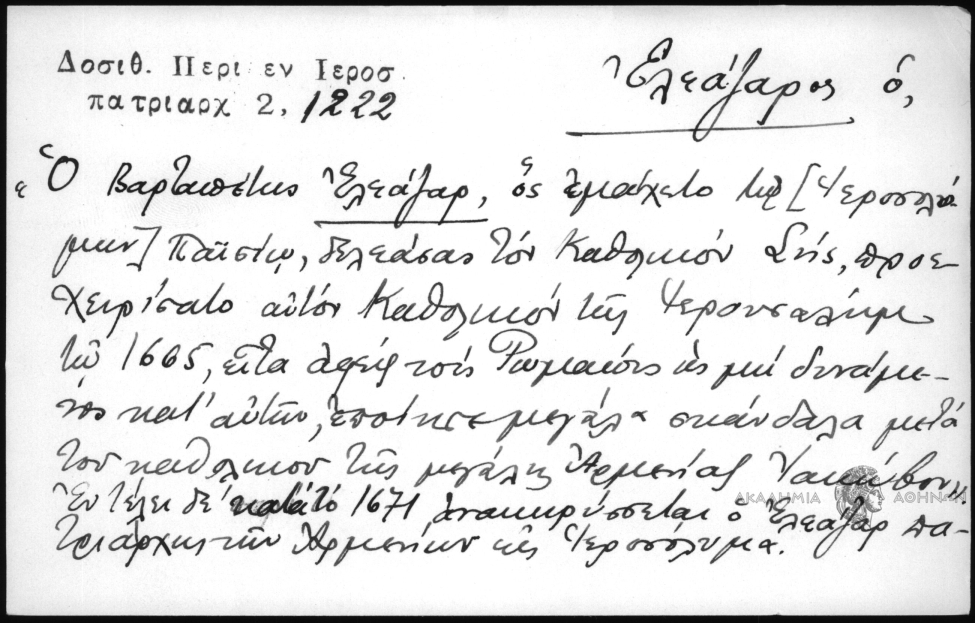 Δοσιθ. Περι εν Ιεροσ.
πατριαρχ 2, 1222
Ἐλεάζαρος ὁ,
"Ὁ Βαρταπέτης Ἐλεάζαρ, ὃς ἐμάχετο τῷ [Ἱεροσολύ-
μων] Παϊσίῳ, δελεάσας τὸν Καθολικὸν Σῆς, προε-
χειρίσατο αὐτὸν Καθολικὸν τῆς Ἱερουσαλὴμ
τῷ 1665, εἶτα ἀφεὶς τοὺς Ρωμαίους ὡς μὴ δυνάμε-
νος κατ' αὐτῶν, ἐποίησε μεγάλα σκάνδαλα μετὰ
τοῦ καθολικοῦ τῆς μεγάλης Ἀρμενίας Ἰακώβου".
Ἐν τέλει δὲ κατὰ τὸ 1671, ἀνακηρύσσεται ὁ Ἐλεάζαρ πα-
τριάρχης τῶν Ἀρμενίων εἰς Ἱεροσόλυμα.
ΑΚΑΔΗΜΙΑ ΑΘΗΝΩΝ